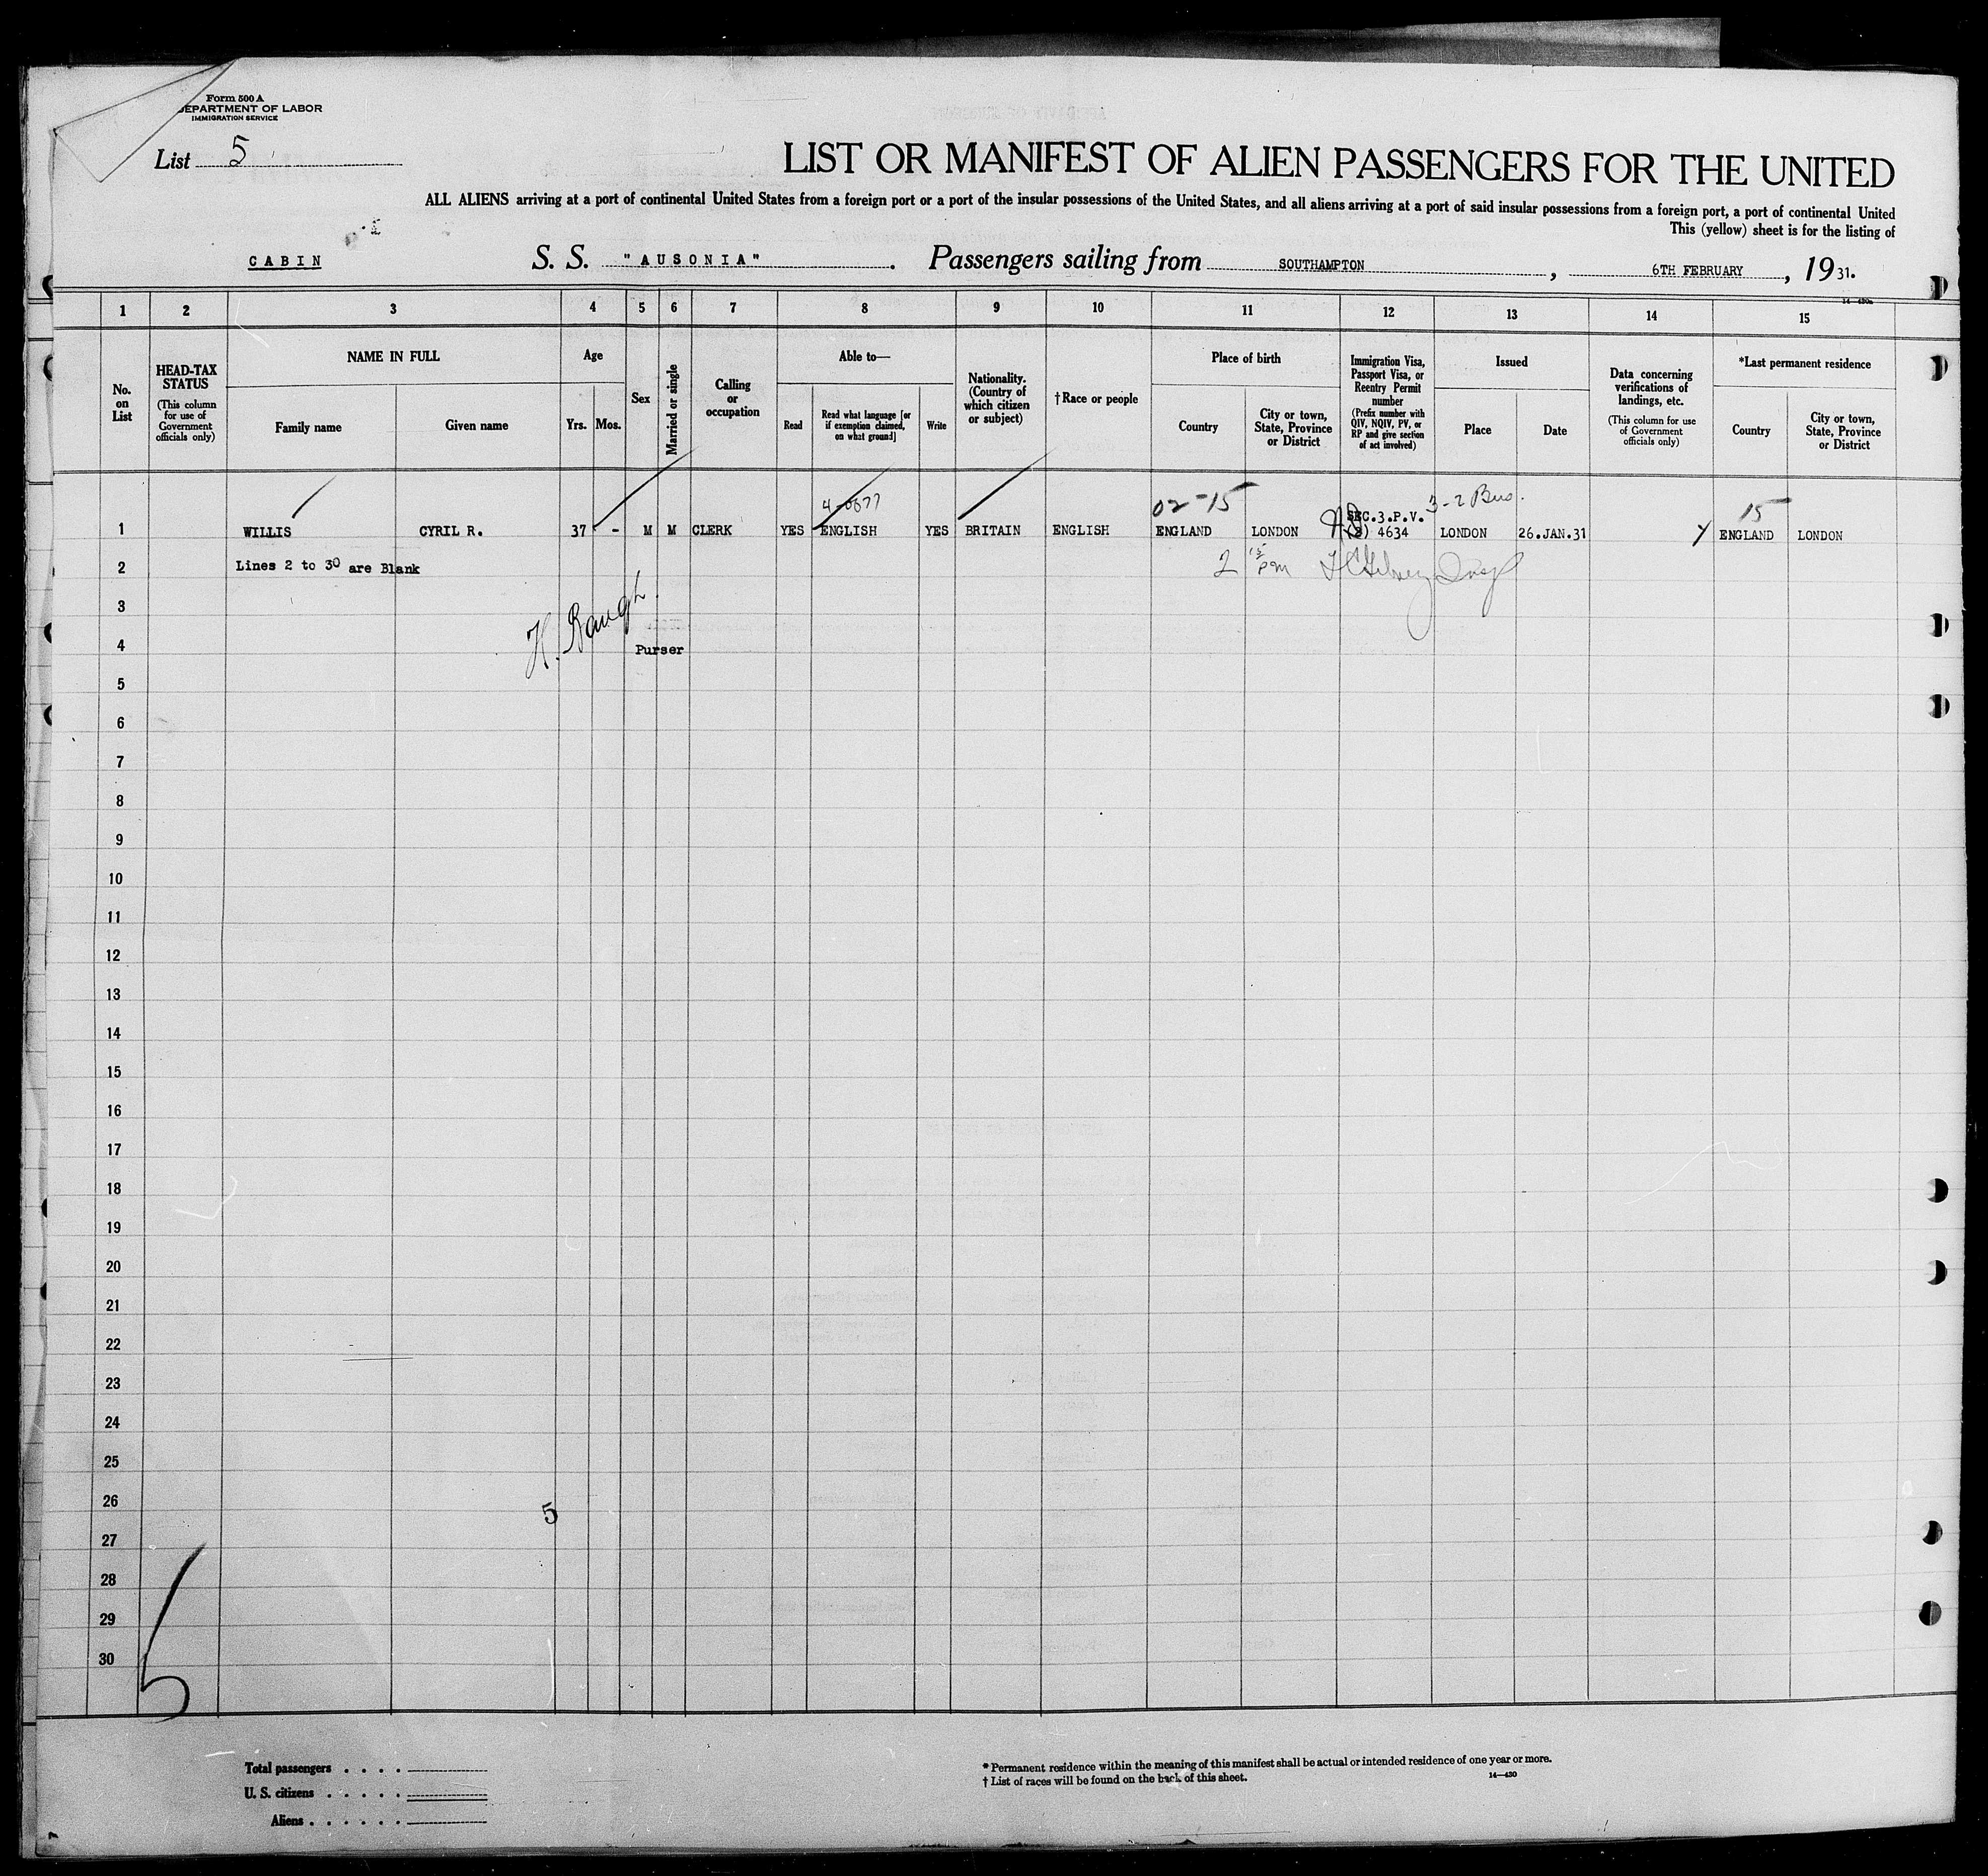 Form 500 A
DEPARTMENT OF LABOR
IMMIGRATION SERVICE
List 5
LIST OR MANIFEST OF ALIEN PASSENGERS FOR THE UNITED
ALL ALIENS arriving at a port of continental United States from a foreign port or a port of the insular possessions of the United States, and all aliens arriving at a port of said insular possessions from a foreign port, a port of continental United
This (yellow) sheet is for the listing of
CABIN S. S. "AUSONIA". Passengers sailing from SOUTHAMPTON, 6TH FEBRUARY, 1931.
14—430a
1 2 3 4 5 6 7 8 9 10 11 12 13 14 15
No. on List
HEAD-TAX STATUS (This column for use of Government officials only)
NAME IN FULL
Family name Given name
Age
Yrs. Mos.
Sex
Married or single
Calling or occupation
Able to—
Read Read what language [or if exemption claimed, on what ground] Write
Nationality. (Country of which citizen or subject)
†Race or people
Place of birth
Country City or town, State, Province or District
Immigration Visa, Passport Visa, or Reentry Permit number (Prefix number with QIV, NQIV, PV, or RP and give section of act involved)
Issued
Place Date
Data concerning verifications of landings, etc. (This column for use of Government officials only)
*Last permanent residence
Country City or town, State, Province or District
02-15 3-2 Bus. 15
SEC.3.P.V.
1 WILLIS CYRIL R. 37 - M M CLERK YES ENGLISH YES BRITAIN ENGLISH ENGLAND LONDON (2) 4634 LONDON 26.JAN.31 ENGLAND LONDON
2 Lines 2 to 30 are Blank 2 15 pm
3
H. Baugh
4 Purser
5
6
7
8
9
10
11
12
13
14
15
16
17
18
19
20
21
22
23
24
25
26
5
27
28
29
30
5
Total passengers . . . .
U. S. citizens . . . . .
Aliens . . . . . .
* Permanent residence within the meaning of this manifest shall be actual or intended residence of one year or more.
† List of races will be found on the back of this sheet.
14—430